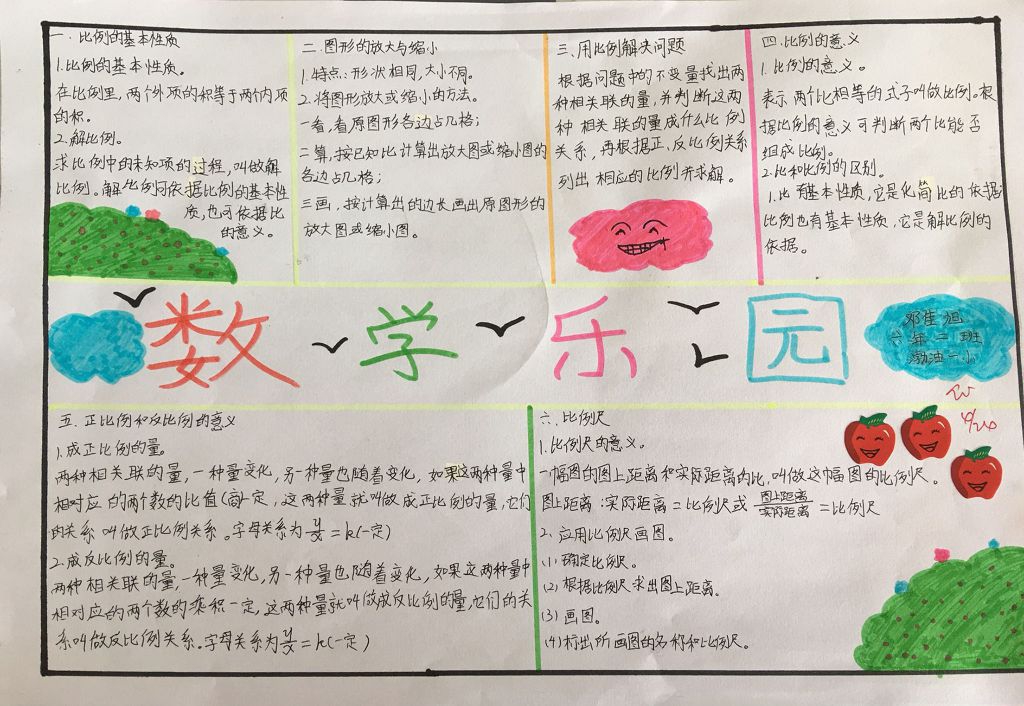 一.比例的基本性质
1.比例的基本性质。
在比例里,两个外项的积等于两个内项
的积。
2.解比例。
求比例中的未知项的过程,叫做解
比例。解比例可依据比例的基本性
质,也可依据比
的意义。
二.图形的放大与缩小
1.特点:形状相同,大小不同。
2.将图形放大或缩小的方法。
一看,看原图形各边占几格;
二算,按已知比计算出放大图或缩小图的
各边占几格;
三画,按计算出的边长画出原图形的
放大图或缩小图。
三.用比例解决问题
根据问题中的不变量找出两
种相关联的量,并判断这两
种相关联的量成什么比例
关系,再根据正、反比例关系
列出相应的比例并求解。
四.比例的意义
1.比例的意义。
表示两个比相等的式子叫做比例。根
据比例的意义可判断两个比能否
组成比例。
2.比和比例的区别。
1.比有基本性质,它是化简比的依据;
比例也有基本性质,它是解比例的
依据。
数学乐园
邓隹旭
六年二班
渤油一小
五.正比例和反比例的意义
1.成正比例的量。
两种相关联的量,一种量变化,另一种量也随着变化,如果这两种量中
相对应的两个数的比值(商)一定,这两种量就叫做成正比例的量,它们
的关系叫做正比例关系。字母关系为y/x=k(一定)
2.成反比例的量。
两种相关联的量,一种量变化,另一种量也随着变化,如果这两种量中
相对应的两个数的乘积一定,这两种量就叫做成反比例的量,它们的关
系叫做反比例关系。字母关系为y/x=k(一定)
六.比例尺
1.比例尺的意义。
一幅图的图上距离和实际距离的比,叫做这幅图的比例尺。
图上距离:实际距离=比例尺或图上距离/实际距离=比例尺
2.应用比例尺画图。
(1)确定比例尺。
(2)根据比例尺求出图上距离。
(3)画图。
(4)标出所画图的名称和比例尺。